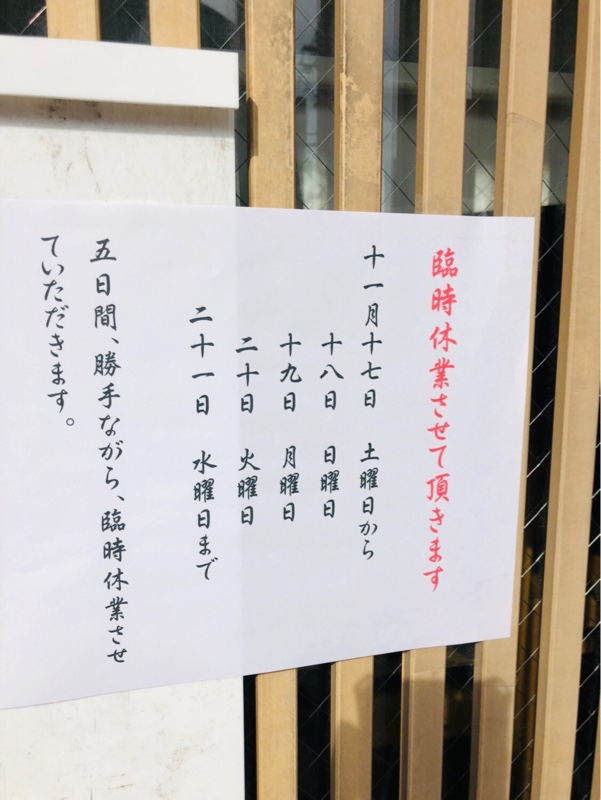 臨時休業させて頂きます
十一月十七日 土曜日から
十八日 日曜日
十九日 月曜日
二十日 火曜日
二十一日 水曜日まで
五日間、勝手ながら、臨時休業させ
ていただきます。